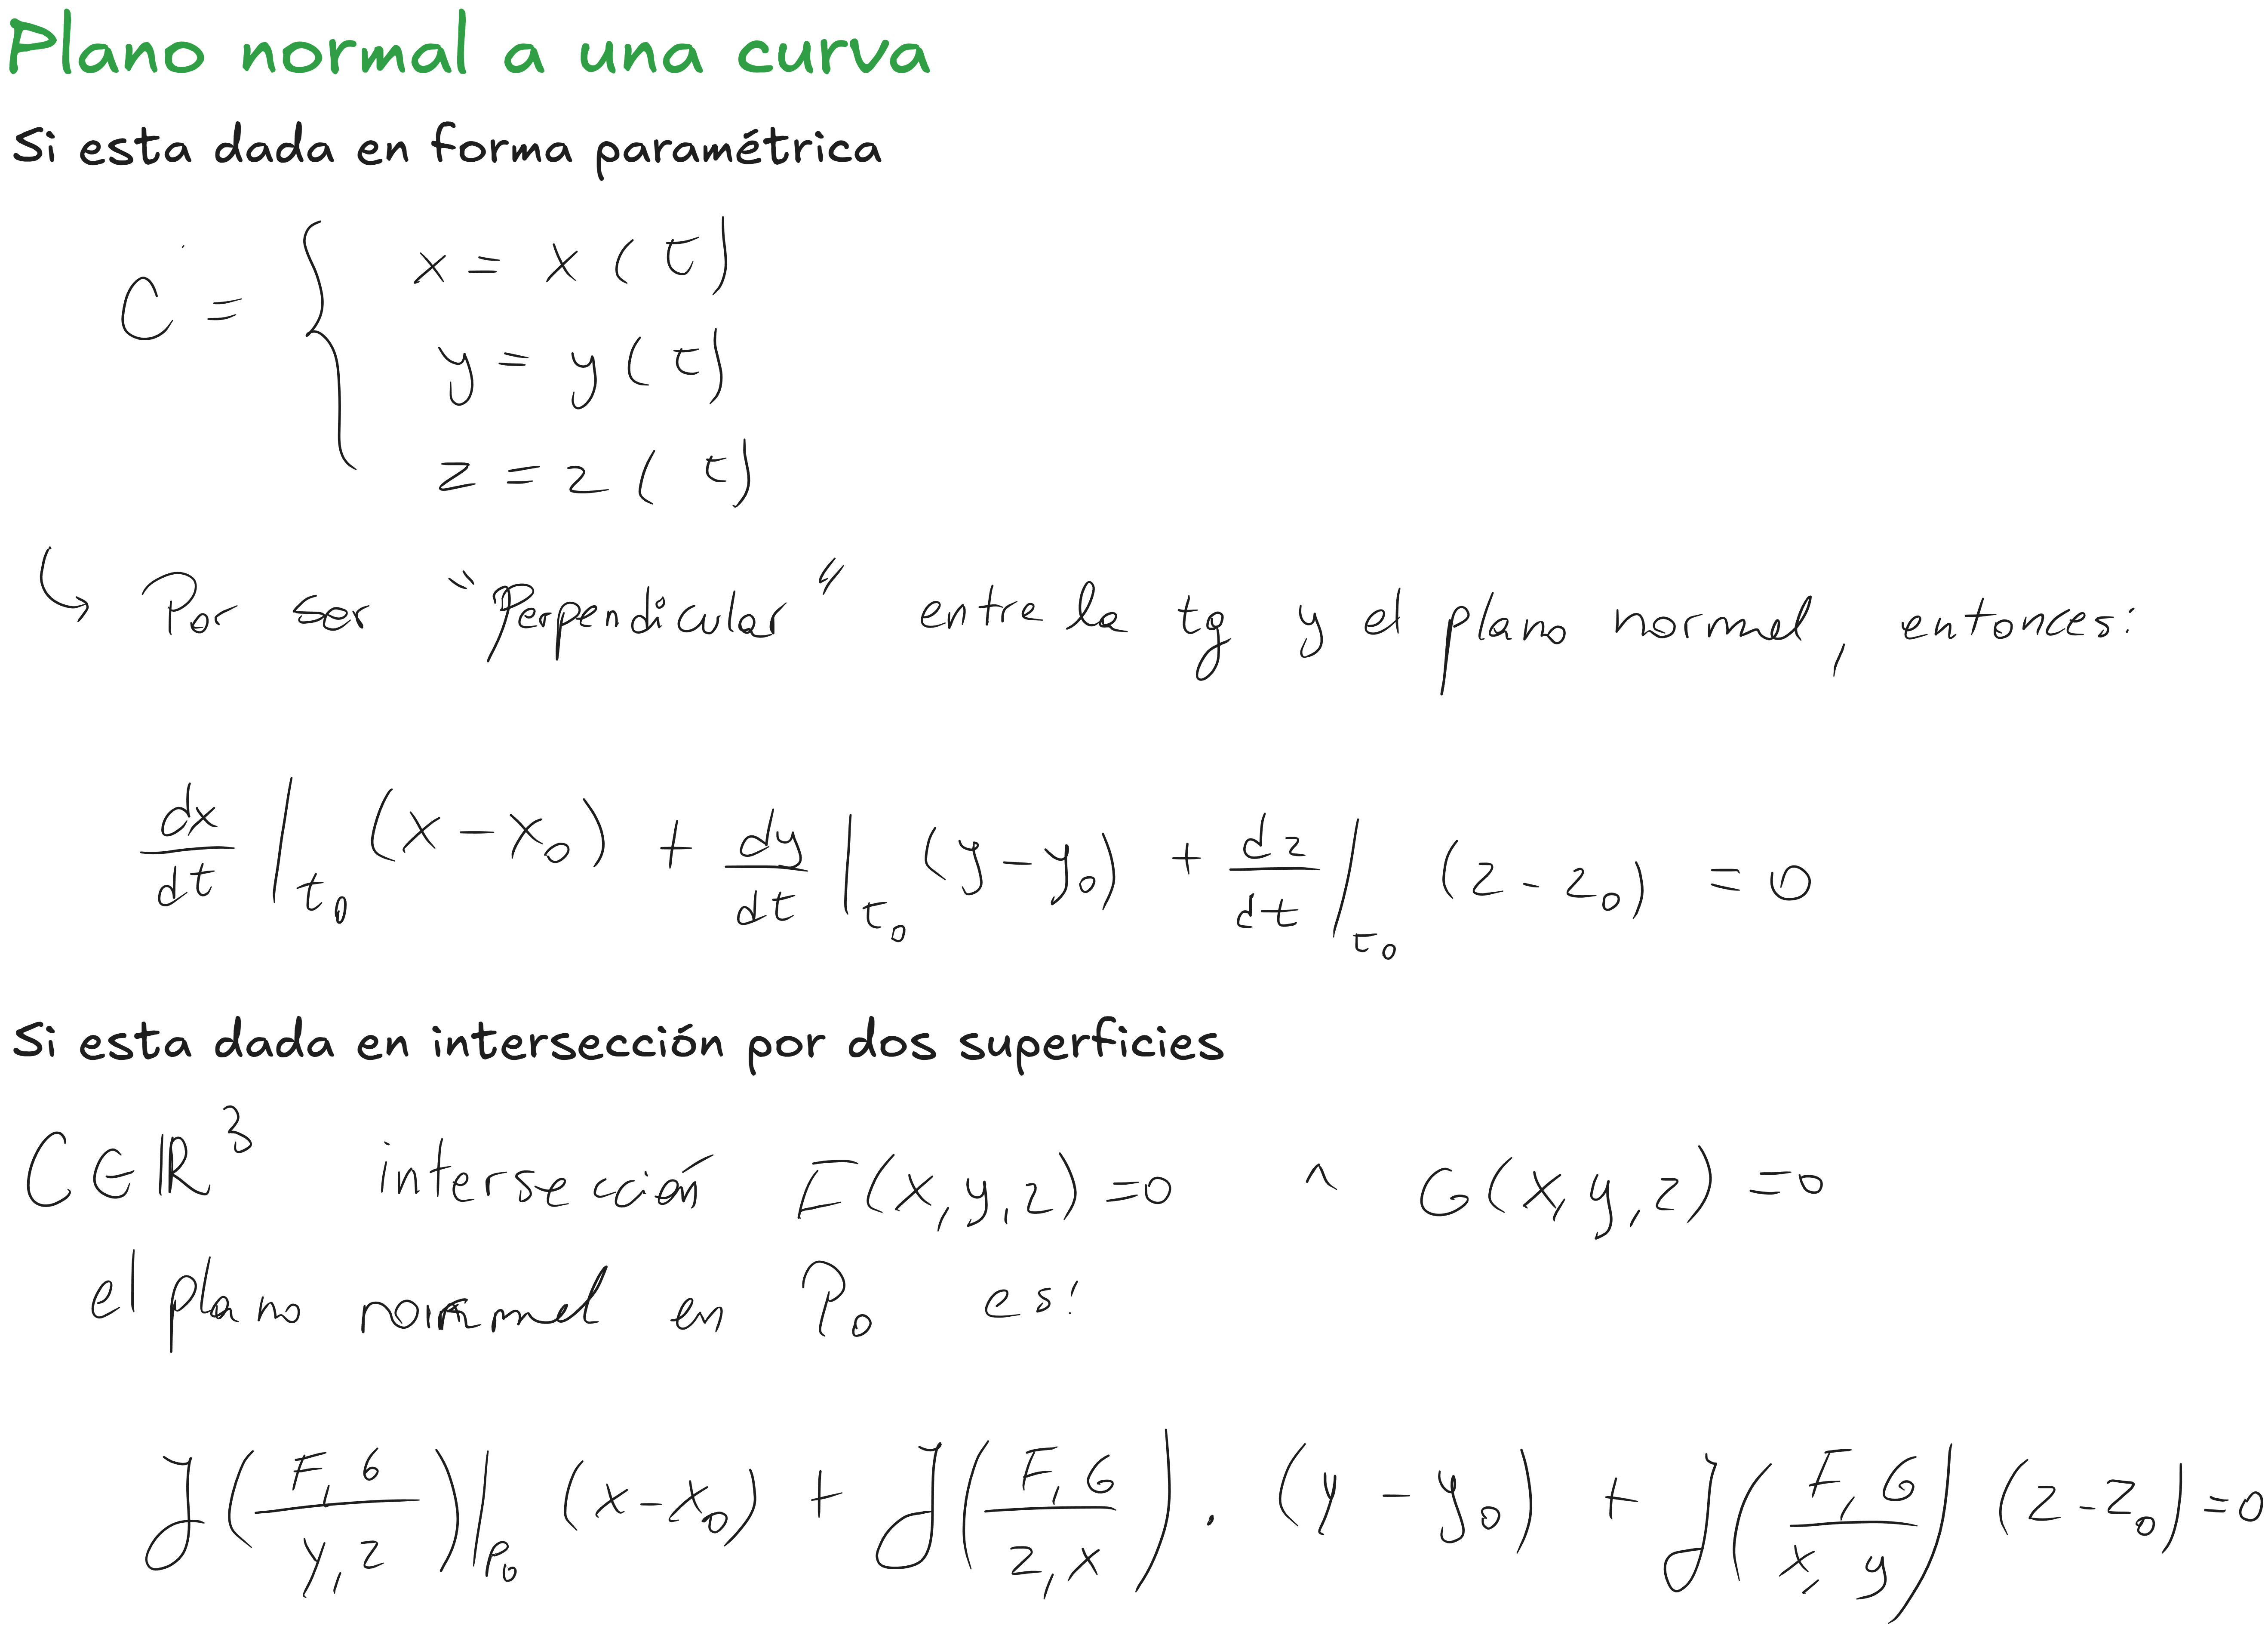 Plano normal a una curva
Si esta dada en forma paramétrica
C = { x = x(t)
y = y(t)
z = z(t)
↳ Por ser "Perpendicular" entre la tg y el plano normal, entonces:
dx/dt |t₀ (x - x₀) + dy/dt |t₀ (y - y₀) + dz/dt |t₀ (z - z₀) = 0
Si esta dada en intersección por dos superficies
C ∈ ℝ³ intersección F(x,y,z)=0 ^ G(x,y,z)=0
el plano normal en P₀ es:
J(F,G / y,z)|P₀ (x - x₀) + J(F,G / z,x) . (y - y₀) + J(F,G / x,y) (z - z₀) = 0